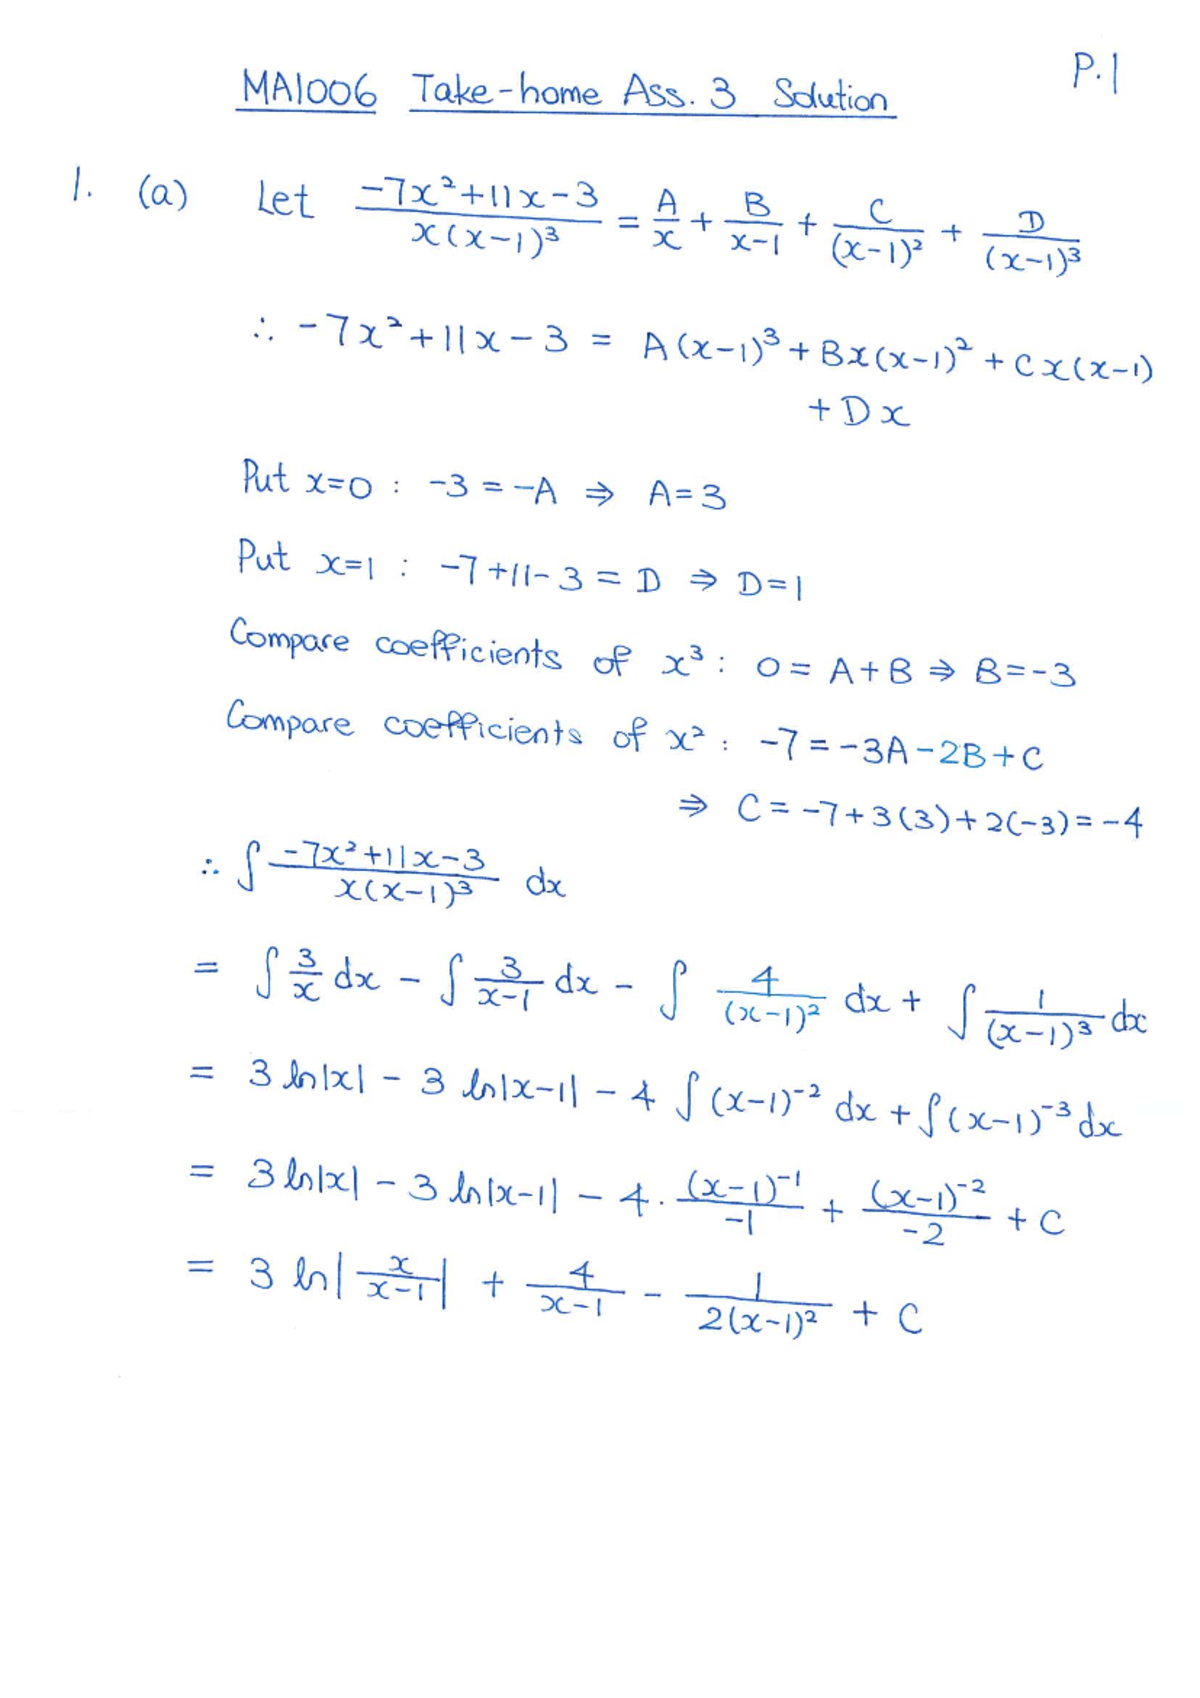 P.1
MA1006 Take-home Ass. 3 Solution
1. (a) Let (-7x²+11x-3)/(x(x-1)³) = A/x + B/(x-1) + C/(x-1)² + D/(x-1)³
∴ -7x²+11x-3 = A(x-1)³ + Bx(x-1)² + Cx(x-1)
+ Dx
Put x=0 : -3 = -A ⇒ A=3
Put x=1 : -7+11-3 = D ⇒ D=1
Compare coefficients of x³ : 0 = A+B ⇒ B=-3
Compare coefficients of x² : -7 = -3A-2B+C
⇒ C = -7+3(3)+2(-3) = -4
∴ ∫ (-7x²+11x-3)/(x(x-1)³) dx
= ∫ 3/x dx - ∫ 3/(x-1) dx - ∫ 4/(x-1)² dx + ∫ 1/(x-1)³ dx
= 3 ln|x| - 3 ln|x-1| - 4 ∫ (x-1)⁻² dx + ∫ (x-1)⁻³ dx
= 3 ln|x| - 3 ln|x-1| - 4 · (x-1)⁻¹/-1 + (x-1)⁻²/-2 + C
= 3 ln|x/(x-1)| + 4/(x-1) - 1/(2(x-1)²) + C